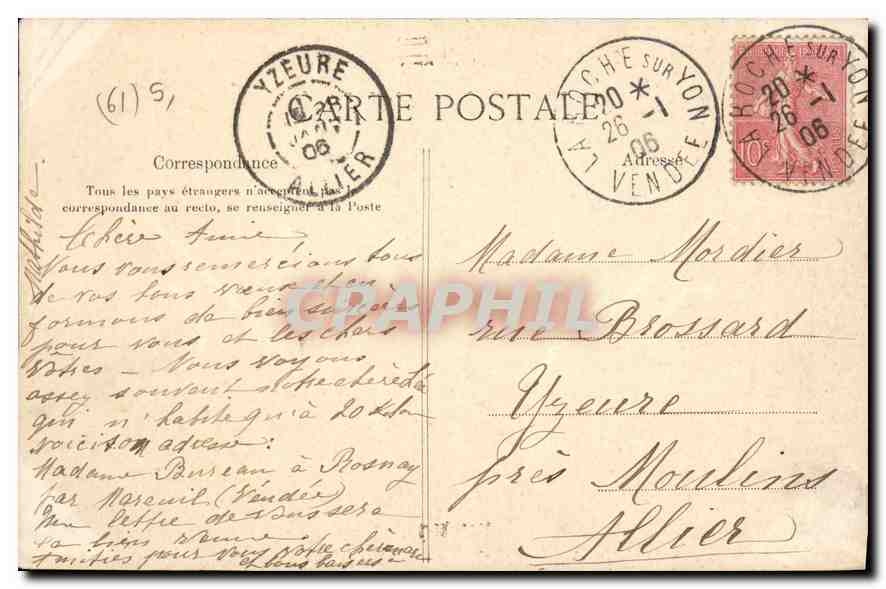 (61) 5,
YZEURE
ALLIER
06
LA ROCHE SUR YON
20 *
26 -1
06
VENDÉE
LA ROCHE SUR YON
20 *
26 -1
06
VENDÉE
10c
CARTE POSTALE
Correspondance
Adresse
Tous les pays étrangers n'acceptent pas la
correspondance au recto, se renseigner à la Poste
Mathilde.
CPAPHIL
Chère Amie
Nous vous remercions tous
de vos bons voeux et en
formons de bien sincères
pour vous et les chers
vôtres – Nous voyons
assez souvent notre chère
qui n'habite qu'à 20 K
voici son adresse :
Madame Bureau à Rosnay
par Mareuil (Vendée)
lettre de vous sera
la bien venue.
Amitiés pour vous votre
et bons baisers
Madame Mordier
rue Brossard
Yzeure
près Moulins
Allier